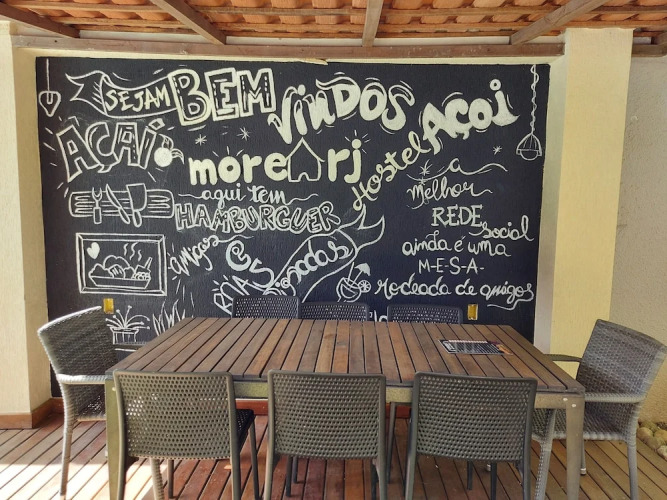 SEJAM BEM VINDOS
AÇAÍ
more rj
Hostel Açoi
aqui tem
HAMBURGUER
amigos
a
melhor
REDE
social
ainda é uma
M-E-S-A-
Rodeada de amigos